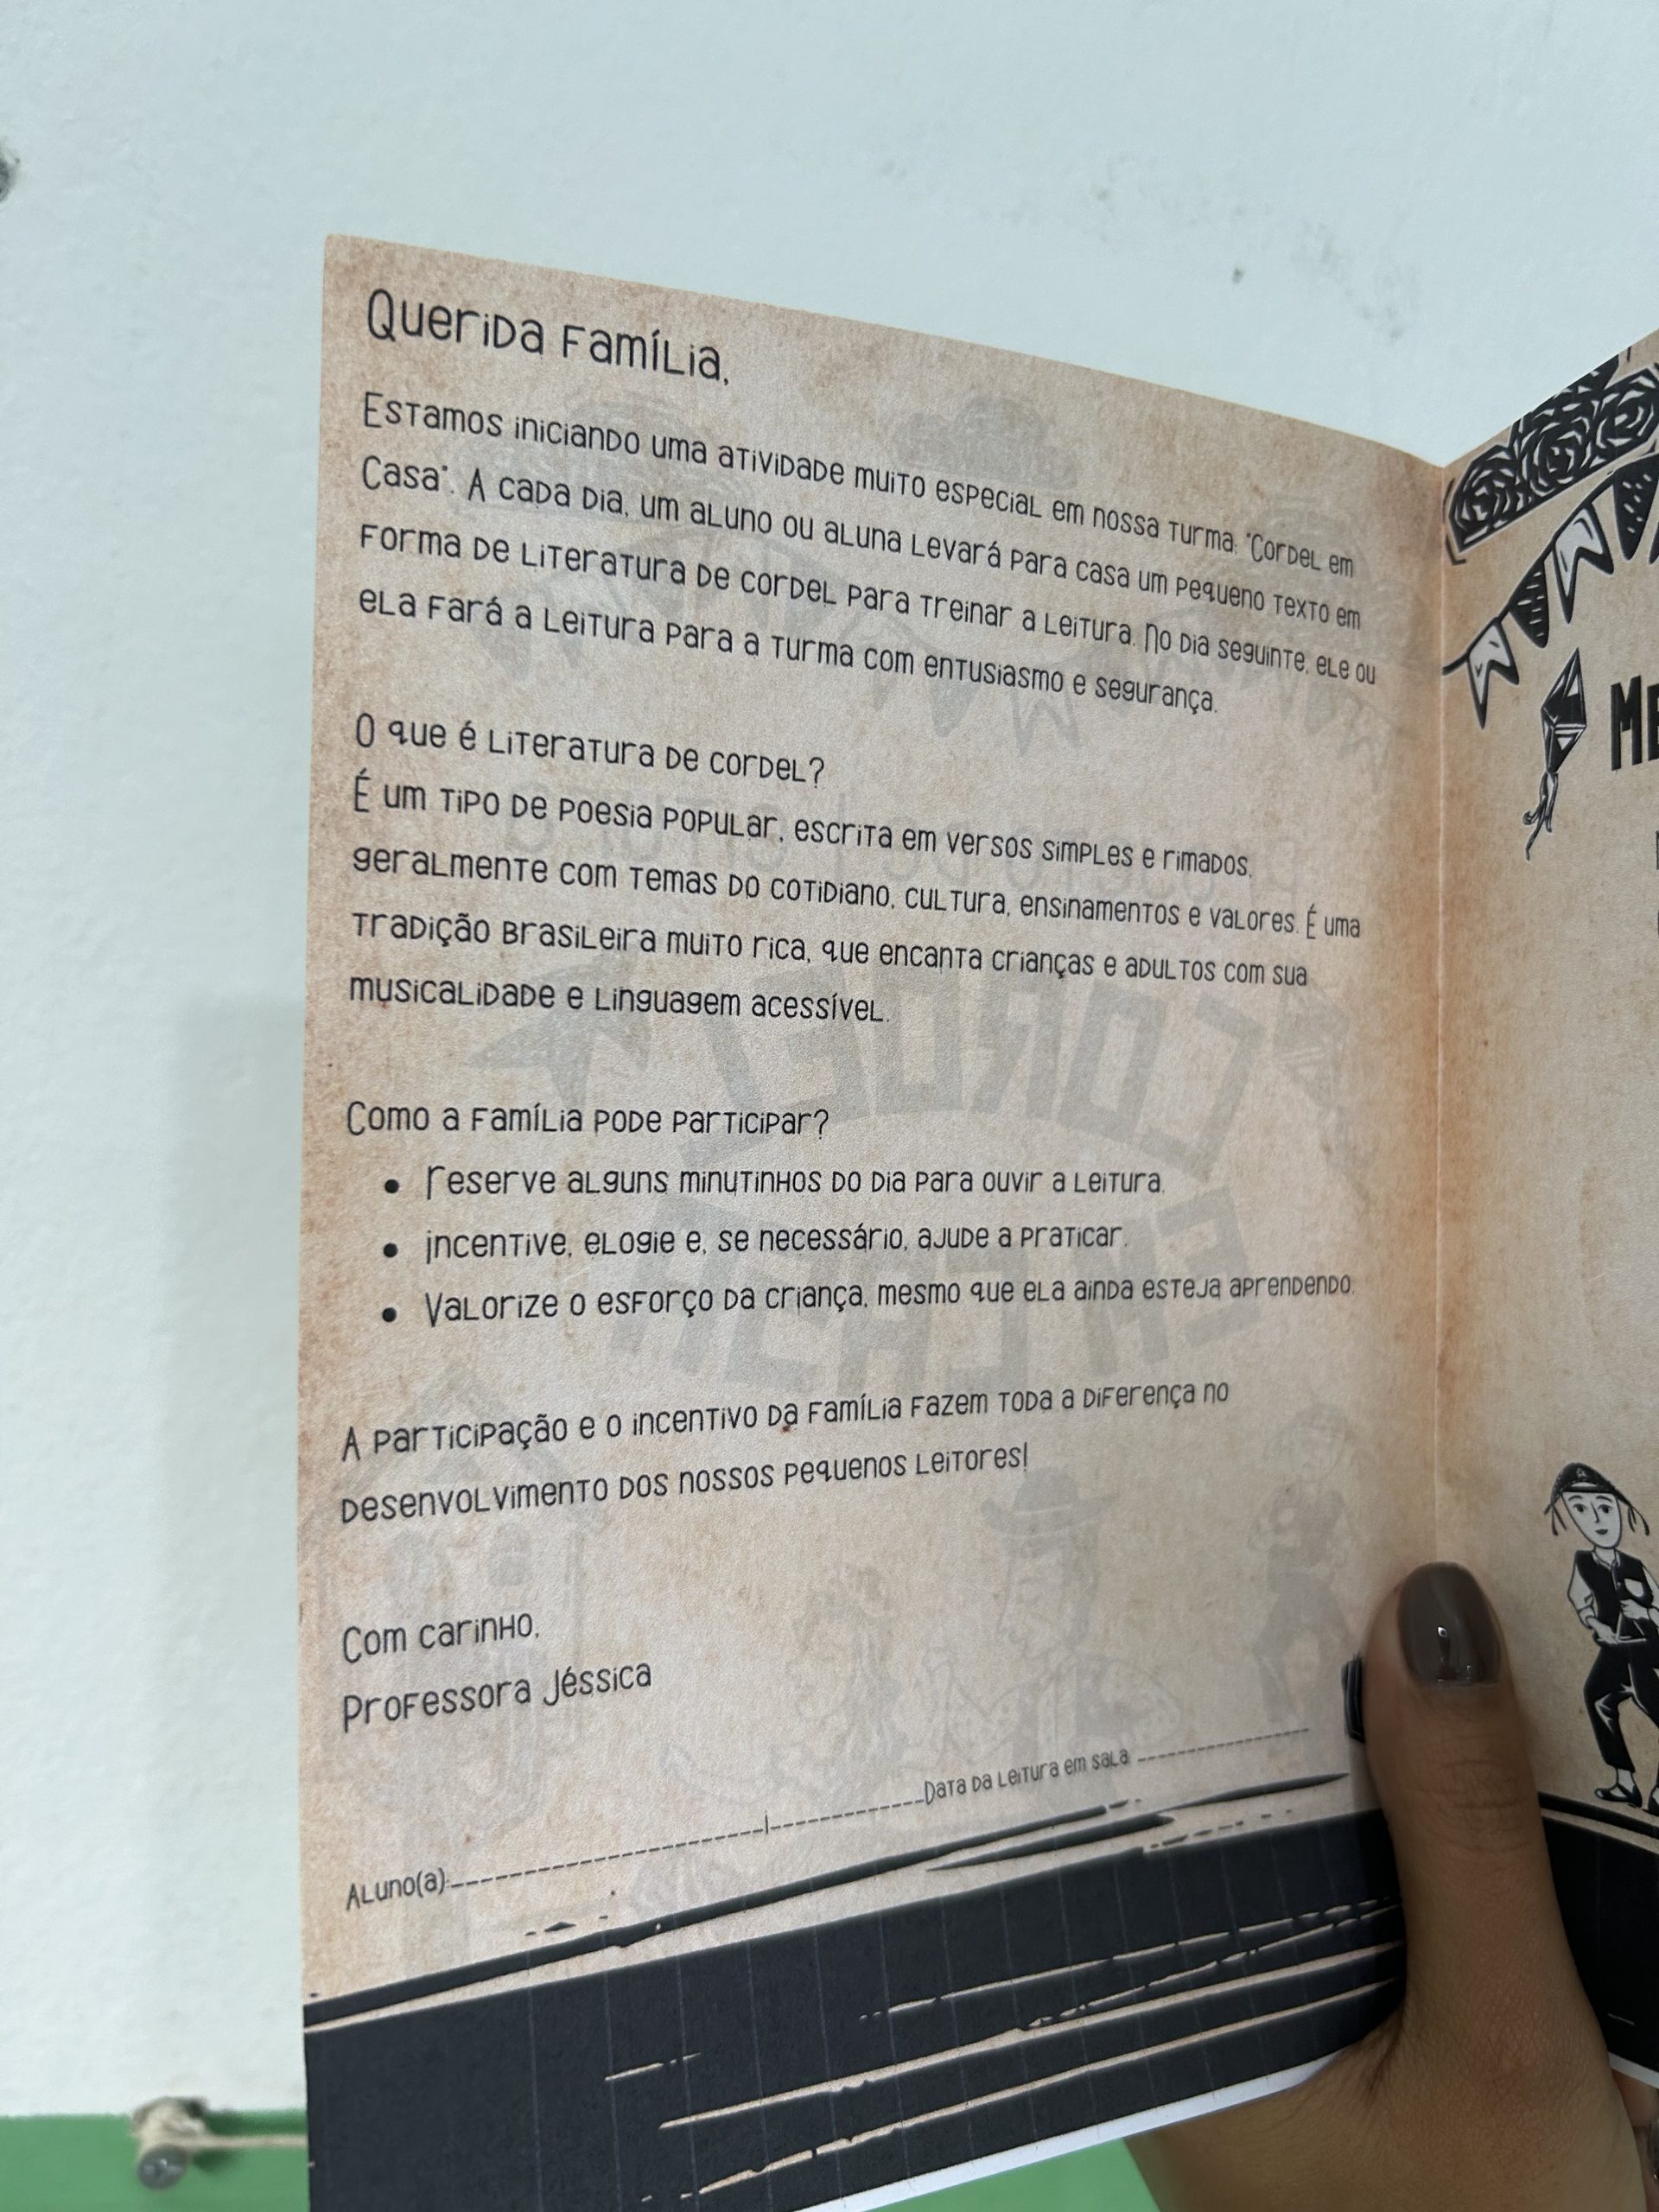 Querida Família,
Estamos iniciando uma atividade muito especial em nossa turma: "Cordel em
Casa". A cada dia, um aluno ou aluna levará para casa um pequeno texto em
forma de literatura de cordel para treinar a leitura. No dia seguinte, ele ou
ela fará a leitura para a turma com entusiasmo e segurança.
O que é literatura de cordel?
É um tipo de poesia popular, escrita em versos simples e rimados,
geralmente com temas do cotidiano, cultura, ensinamentos e valores. É uma
tradição brasileira muito rica, que encanta crianças e adultos com sua
musicalidade e linguagem acessível.
Como a família pode participar?
• Reserve alguns minutinhos do dia para ouvir a leitura.
• Incentive, elogie e, se necessário, ajude a praticar.
• Valorize o esforço da criança, mesmo que ela ainda esteja aprendendo.
A participação e o incentivo da família fazem toda a diferença no
desenvolvimento dos nossos pequenos leitores!
Com carinho,
Professora Jéssica
Aluno(a):____________________|__________Data da leitura em sala ____________
ME